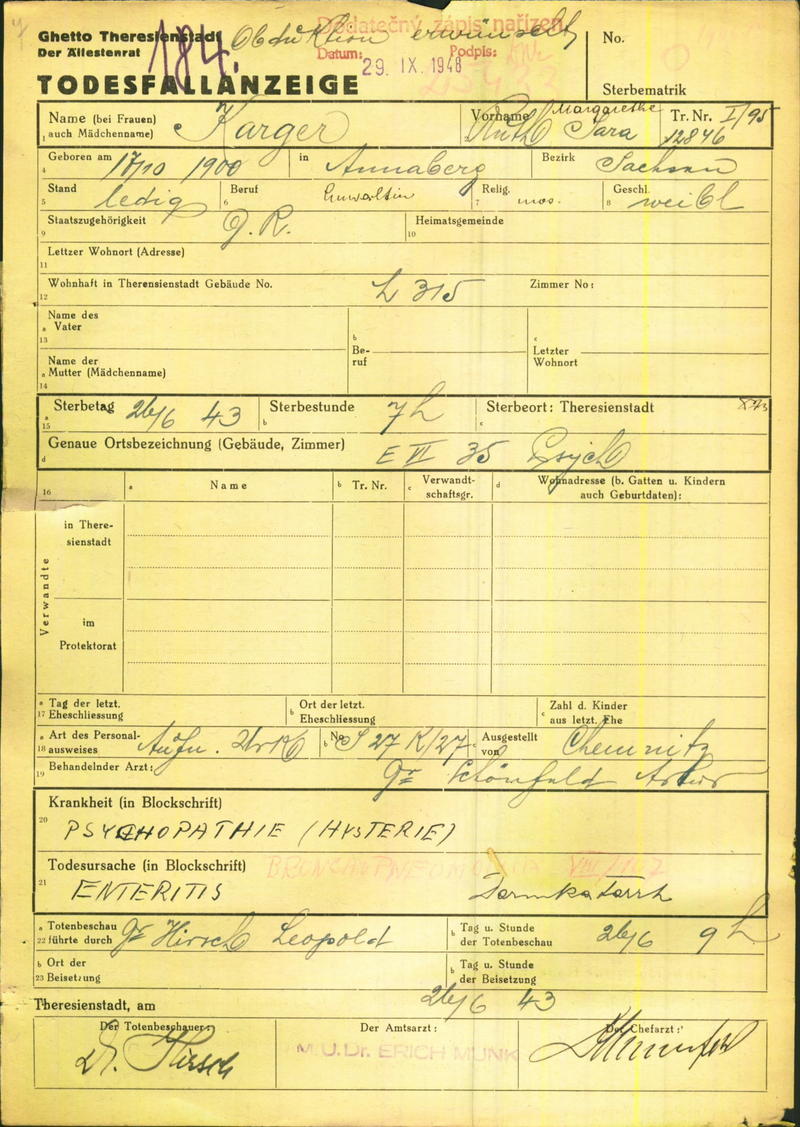 Ghetto Theresienstadt
Der Ältestenrat
184. Obduktion erwünscht
Dodatečný zápis nařízen
Datum: Podpis:
29. IX. 1948
No.
TODESFALLANZEIGE
Sterbematrik
Name (bei Frauen) auch Mädchenname) Karger
1
Vorname Ruth Sara Margarethe
Tr. Nr. I/95 12846
4 Geboren am 17/10 1900 in Annaberg Bezirk Sachsen
5 Stand ledig 6 Beruf 7 Relig. mos. 8 Geschl. weibl
9 Staatszugehörigkeit D. R. 10 Heimatsgemeinde
11 Lettzer Wohnort (Adresse)
12 Wohnhaft in Theresienstadt Gebäude No. L 315 Zimmer No:
a 13 Name des Vater
b Beruf
c Letzter Wohnort
a 14 Name der Mutter (Mädchenname)
a 15 Sterbetag 26/6 43 b Sterbestunde 7 h c Sterbeort: Theresienstadt
d Genaue Ortsbezeichnung (Gebäude, Zimmer) E VI 35 Psych
16 a Name b Tr. Nr. c Verwandtschaftsgr. d Wohnadresse (b. Gatten u. Kindern auch Geburtdaten):
Verwandte
in Theresienstadt
im Protektorat
a 17 Tag der letzt. Eheschliessung b Ort der letzt. Eheschliessung c Zahl d. Kinder aus letzt. Ehe
a 18 Art des Personalausweises Aufn. b No. S 27 K/27 c Ausgestellt von Chemnitz
19 Behandelnder Arzt: Dr Schönfeld Artur
20 Krankheit (in Blockschrift)
PSYCHOPATHIE (HYSTERIE)
21 Todesursache (in Blockschrift) BRONCHOPNEUMONIA
ENTERITIS Darmkatarrh
a 22 Totenbeschau führte durch Dr Hirsch Leopold b Tag u. Stunde der Totenbeschau 26/6 9 h
b 23 Ort der Beisetzung b Tag u. Stunde der Beisetzung
Theresienstadt, am 26/6 43
Der Totenbeschauer: Der Amtsarzt: Der Chefarzt:
Dr. Hirsch M.U.Dr. ERICH MUNK